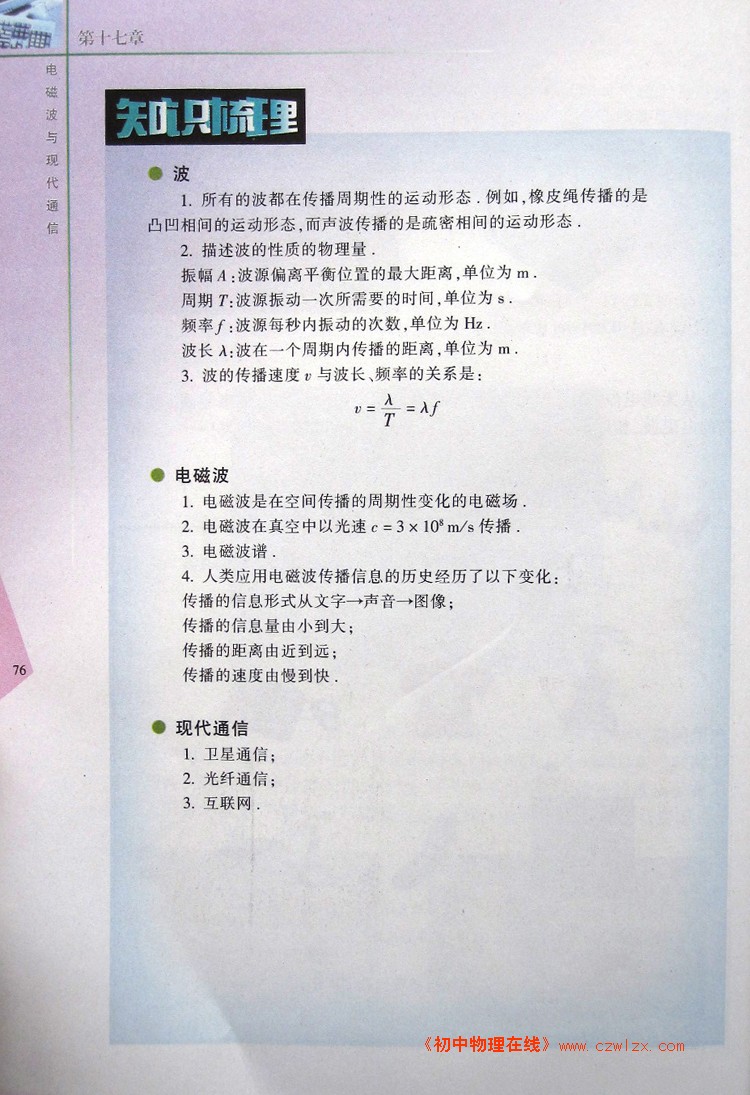 第十七章
电磁波与现代通信
知识梳理
● 波
1. 所有的波都在传播周期性的运动形态．例如,橡皮绳传播的是
凸凹相间的运动形态,而声波传播的是疏密相间的运动形态．
2. 描述波的性质的物理量．
振幅 A:波源偏离平衡位置的最大距离,单位为 m．
周期 T:波源振动一次所需要的时间,单位为 s．
频率 f:波源每秒内振动的次数,单位为 Hz．
波长 λ:波在一个周期内传播的距离,单位为 m．
3. 波的传播速度 v 与波长、频率的关系是:
v = λ/T = λf
● 电磁波
1. 电磁波是在空间传播的周期性变化的电磁场．
2. 电磁波在真空中以光速 c = 3 × 10⁸ m/s 传播．
3. 电磁波谱．
4. 人类应用电磁波传播信息的历史经历了以下变化:
传播的信息形式从文字→声音→图像;
传播的信息量由小到大;
传播的距离由近到远;
传播的速度由慢到快．
● 现代通信
1. 卫星通信;
2. 光纤通信;
3. 互联网．
76
《初中物理在线》www.czwlzx.com